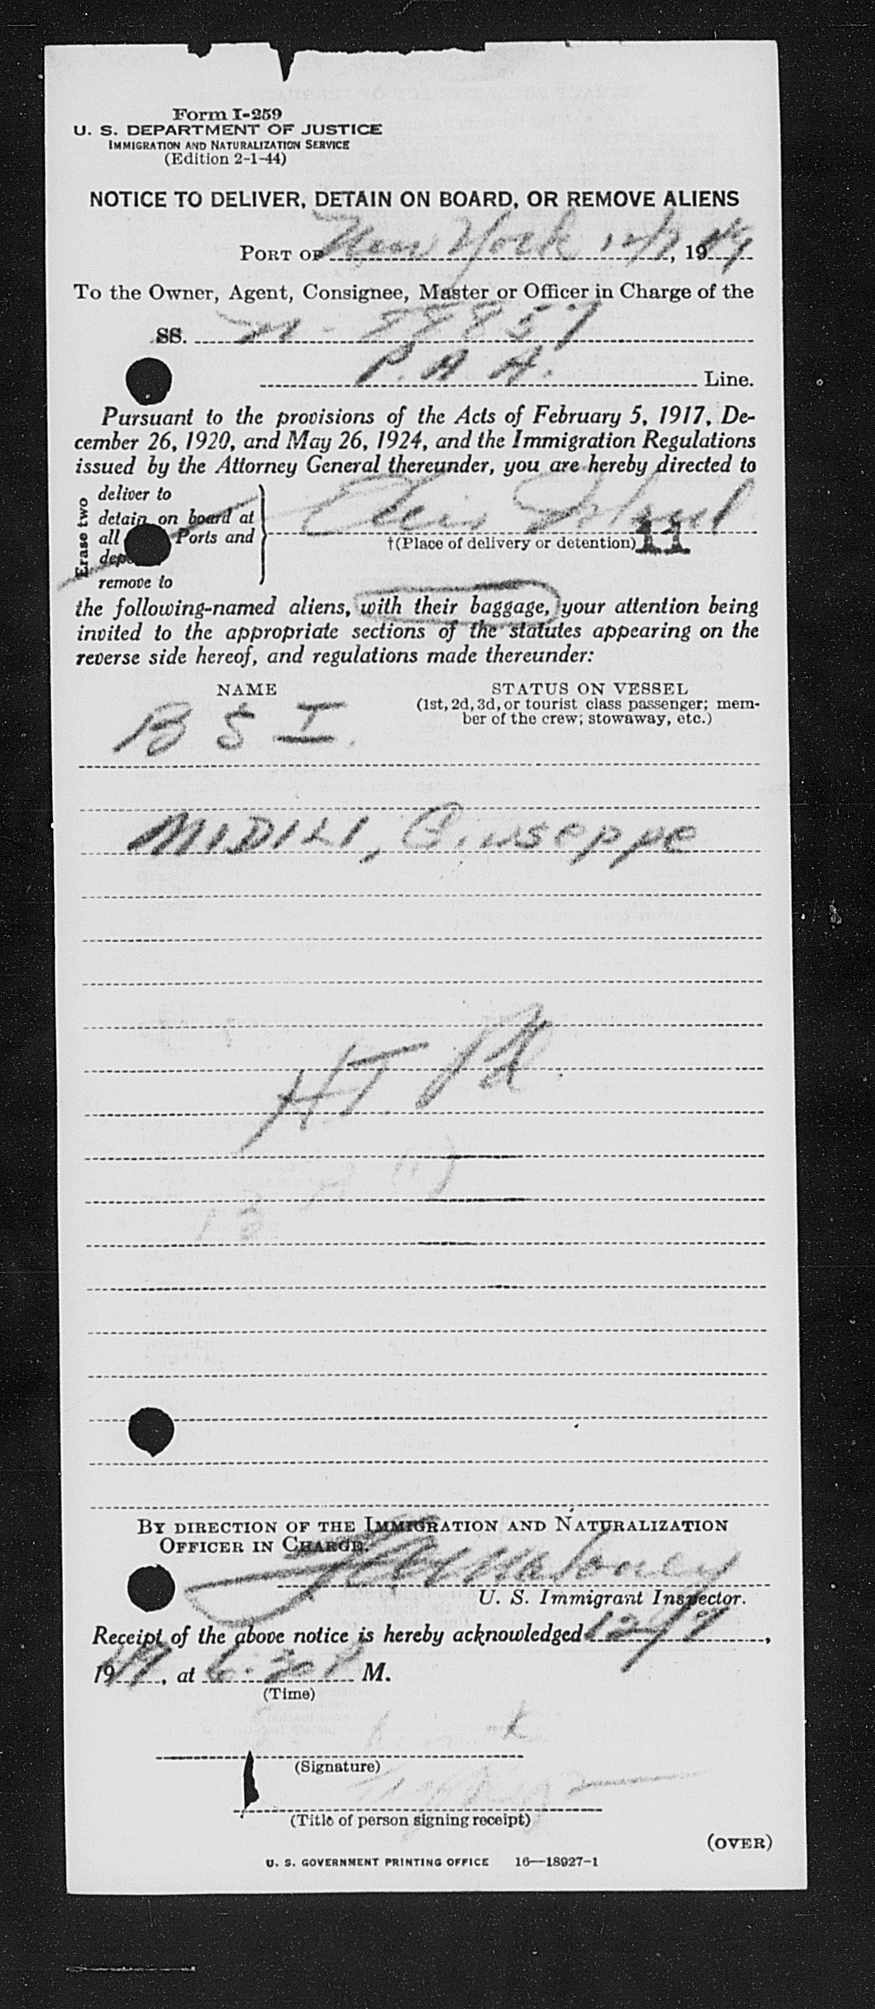 Form I-259
U. S. DEPARTMENT OF JUSTICE
IMMIGRATION AND NATURALIZATION SERVICE
(Edition 2-1-44)
NOTICE TO DELIVER, DETAIN ON BOARD, OR REMOVE ALIENS
PORT OF New York 12/7, 1949
To the Owner, Agent, Consignee, Master or Officer in Charge of the
SS. N - 88857
P. A. A. Line.
Pursuant to the provisions of the Acts of February 5, 1917, De-
cember 26, 1920, and May 26, 1924, and the Immigration Regulations
issued by the Attorney General thereunder, you are hereby directed to
Erase two
deliver to
detain on board at
all Ports and
remove to
Ellis Island
†(Place of delivery or detention) 11
the following-named aliens, with their baggage, your attention being
invited to the appropriate sections of the statutes appearing on the
reverse side hereof, and regulations made thereunder:
NAME
STATUS ON VESSEL
(1st, 2d, 3d, or tourist class passenger; mem-
ber of the crew; stowaway, etc.)
B S I.
MIDILI, Giuseppe
HT. Pd.
BY DIRECTION OF THE IMMIGRATION AND NATURALIZATION
OFFICER IN CHARGE.
Maloney
U. S. Immigrant Inspector.
Receipt of the above notice is hereby acknowledged 12/7,
1949, at 6:30 P M.
(Time)
(Signature)
(Title of person signing receipt)
(OVER)
U. S. GOVERNMENT PRINTING OFFICE 16—18927-1